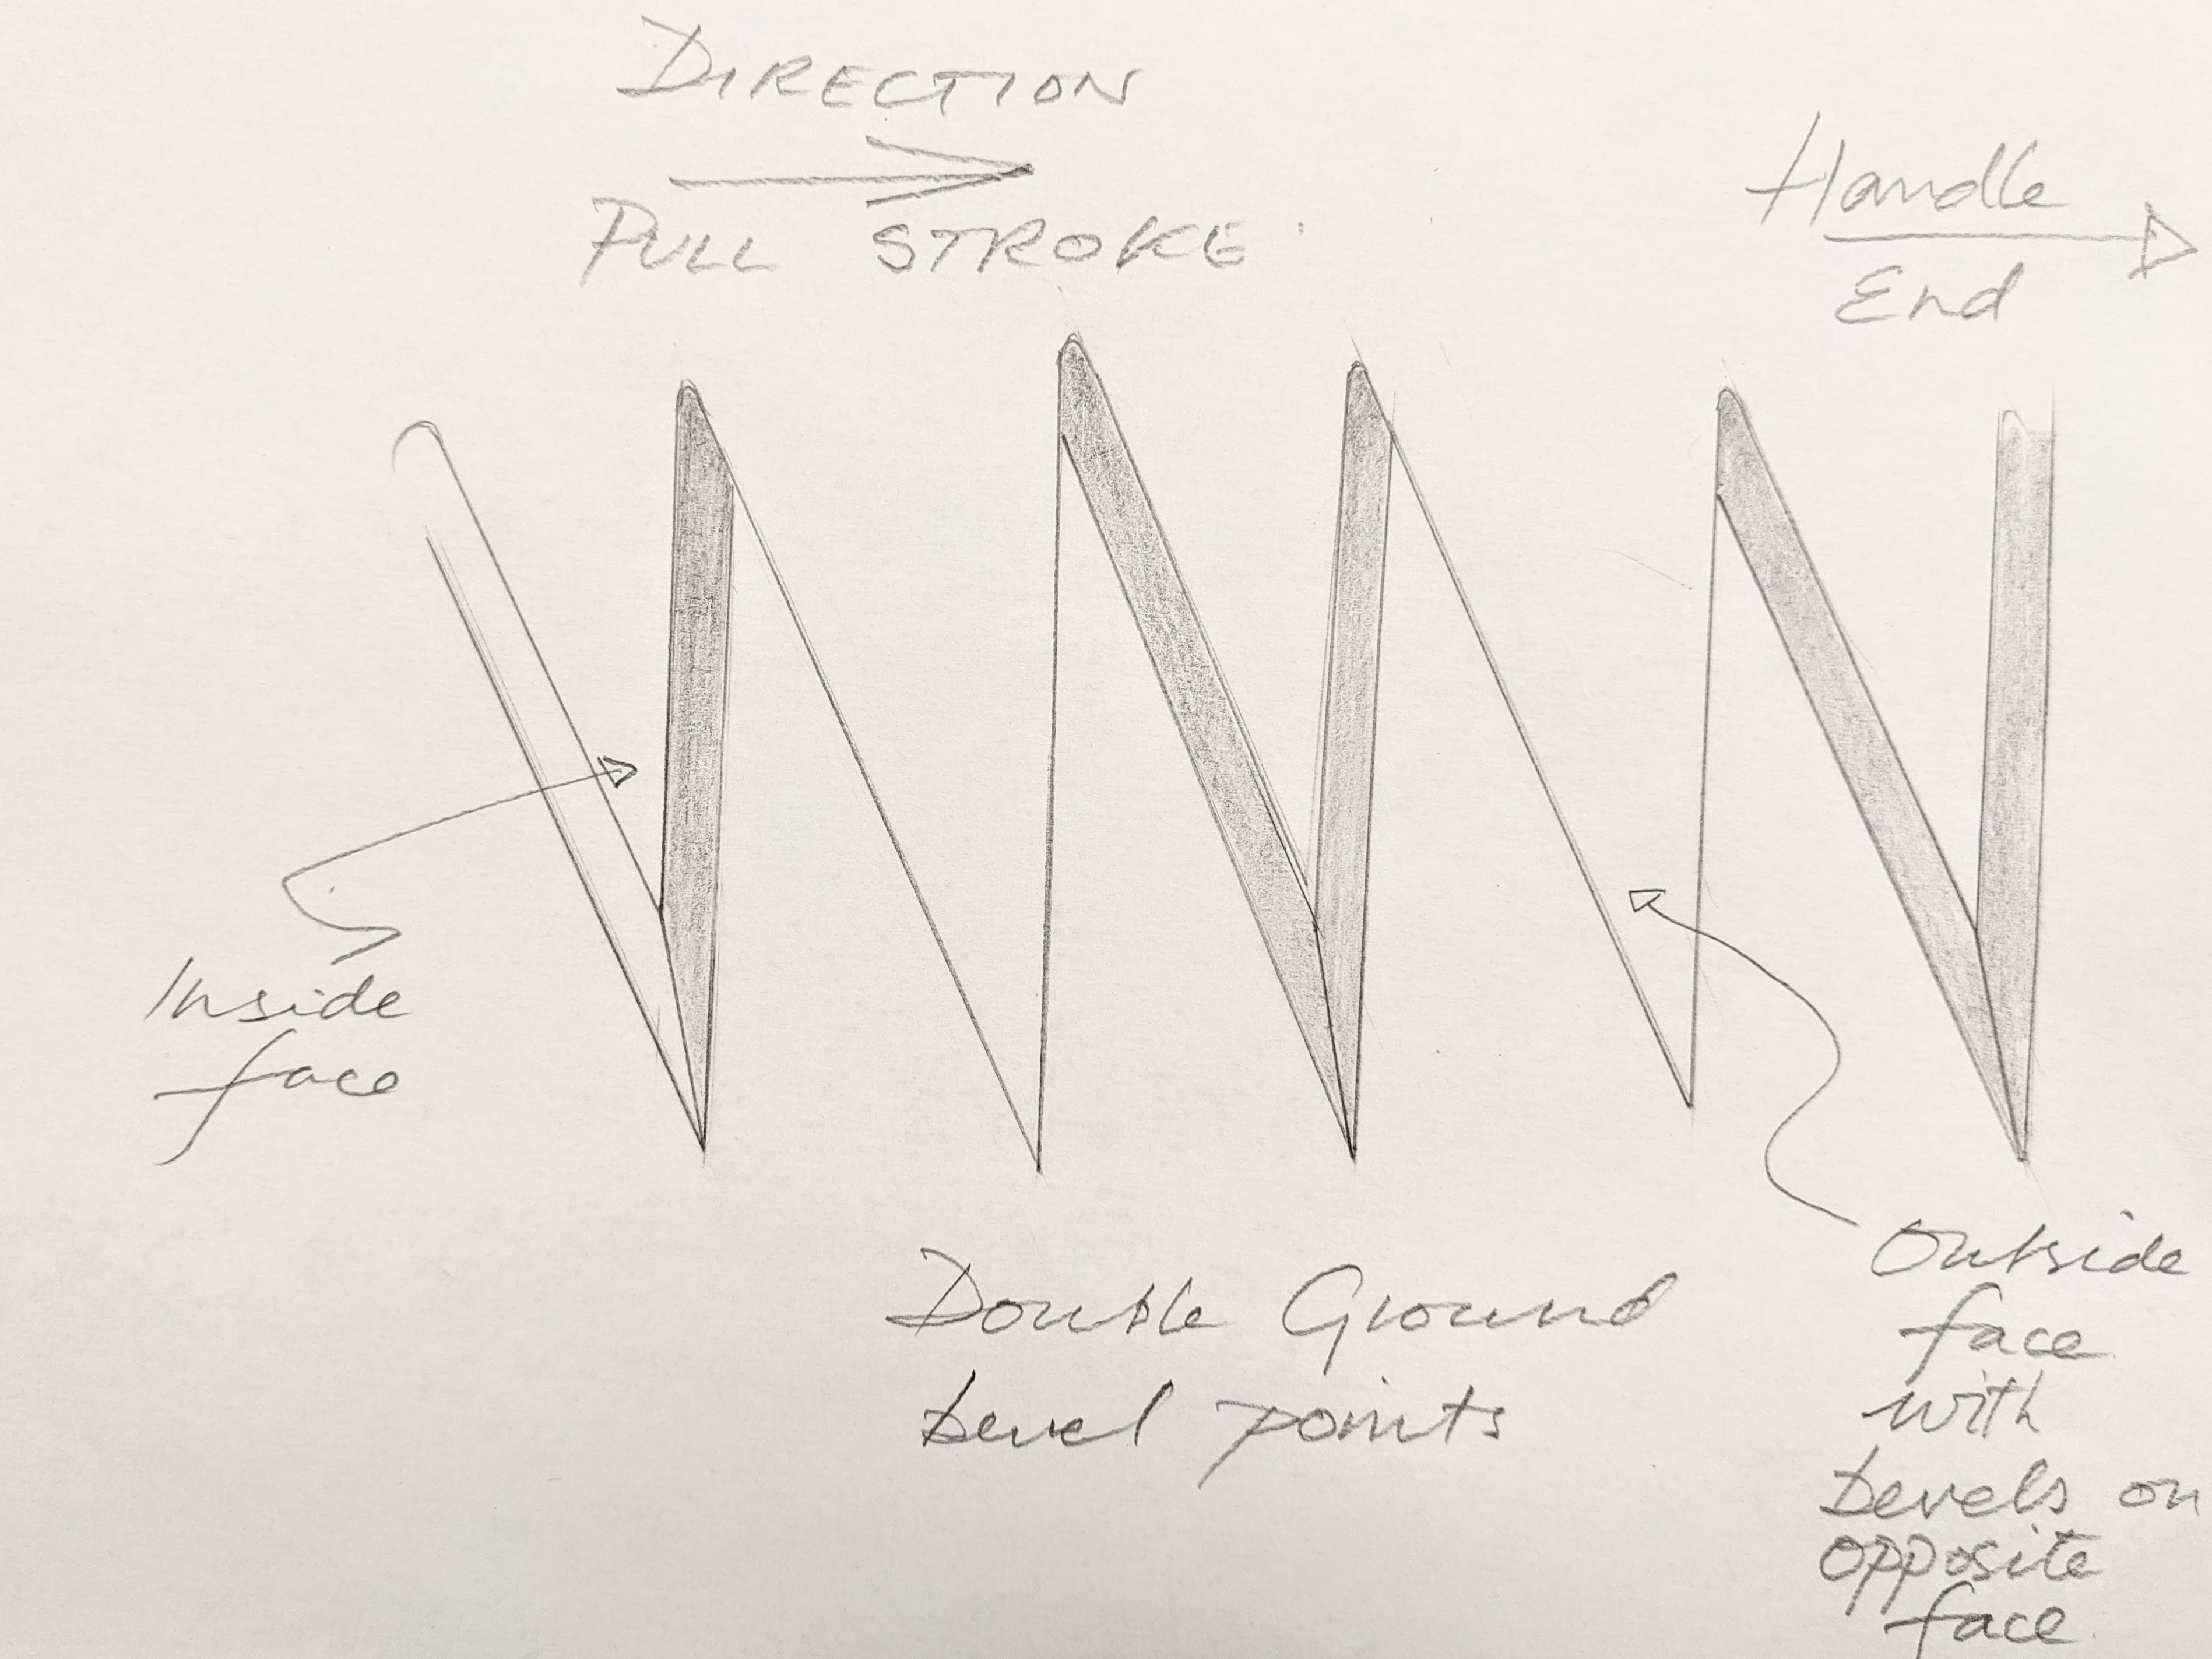 DIRECTION
PULL STROKE
Handle
End
Inside
face
Double Ground
bevel points
Outside
face
with
bevels on
opposite
face